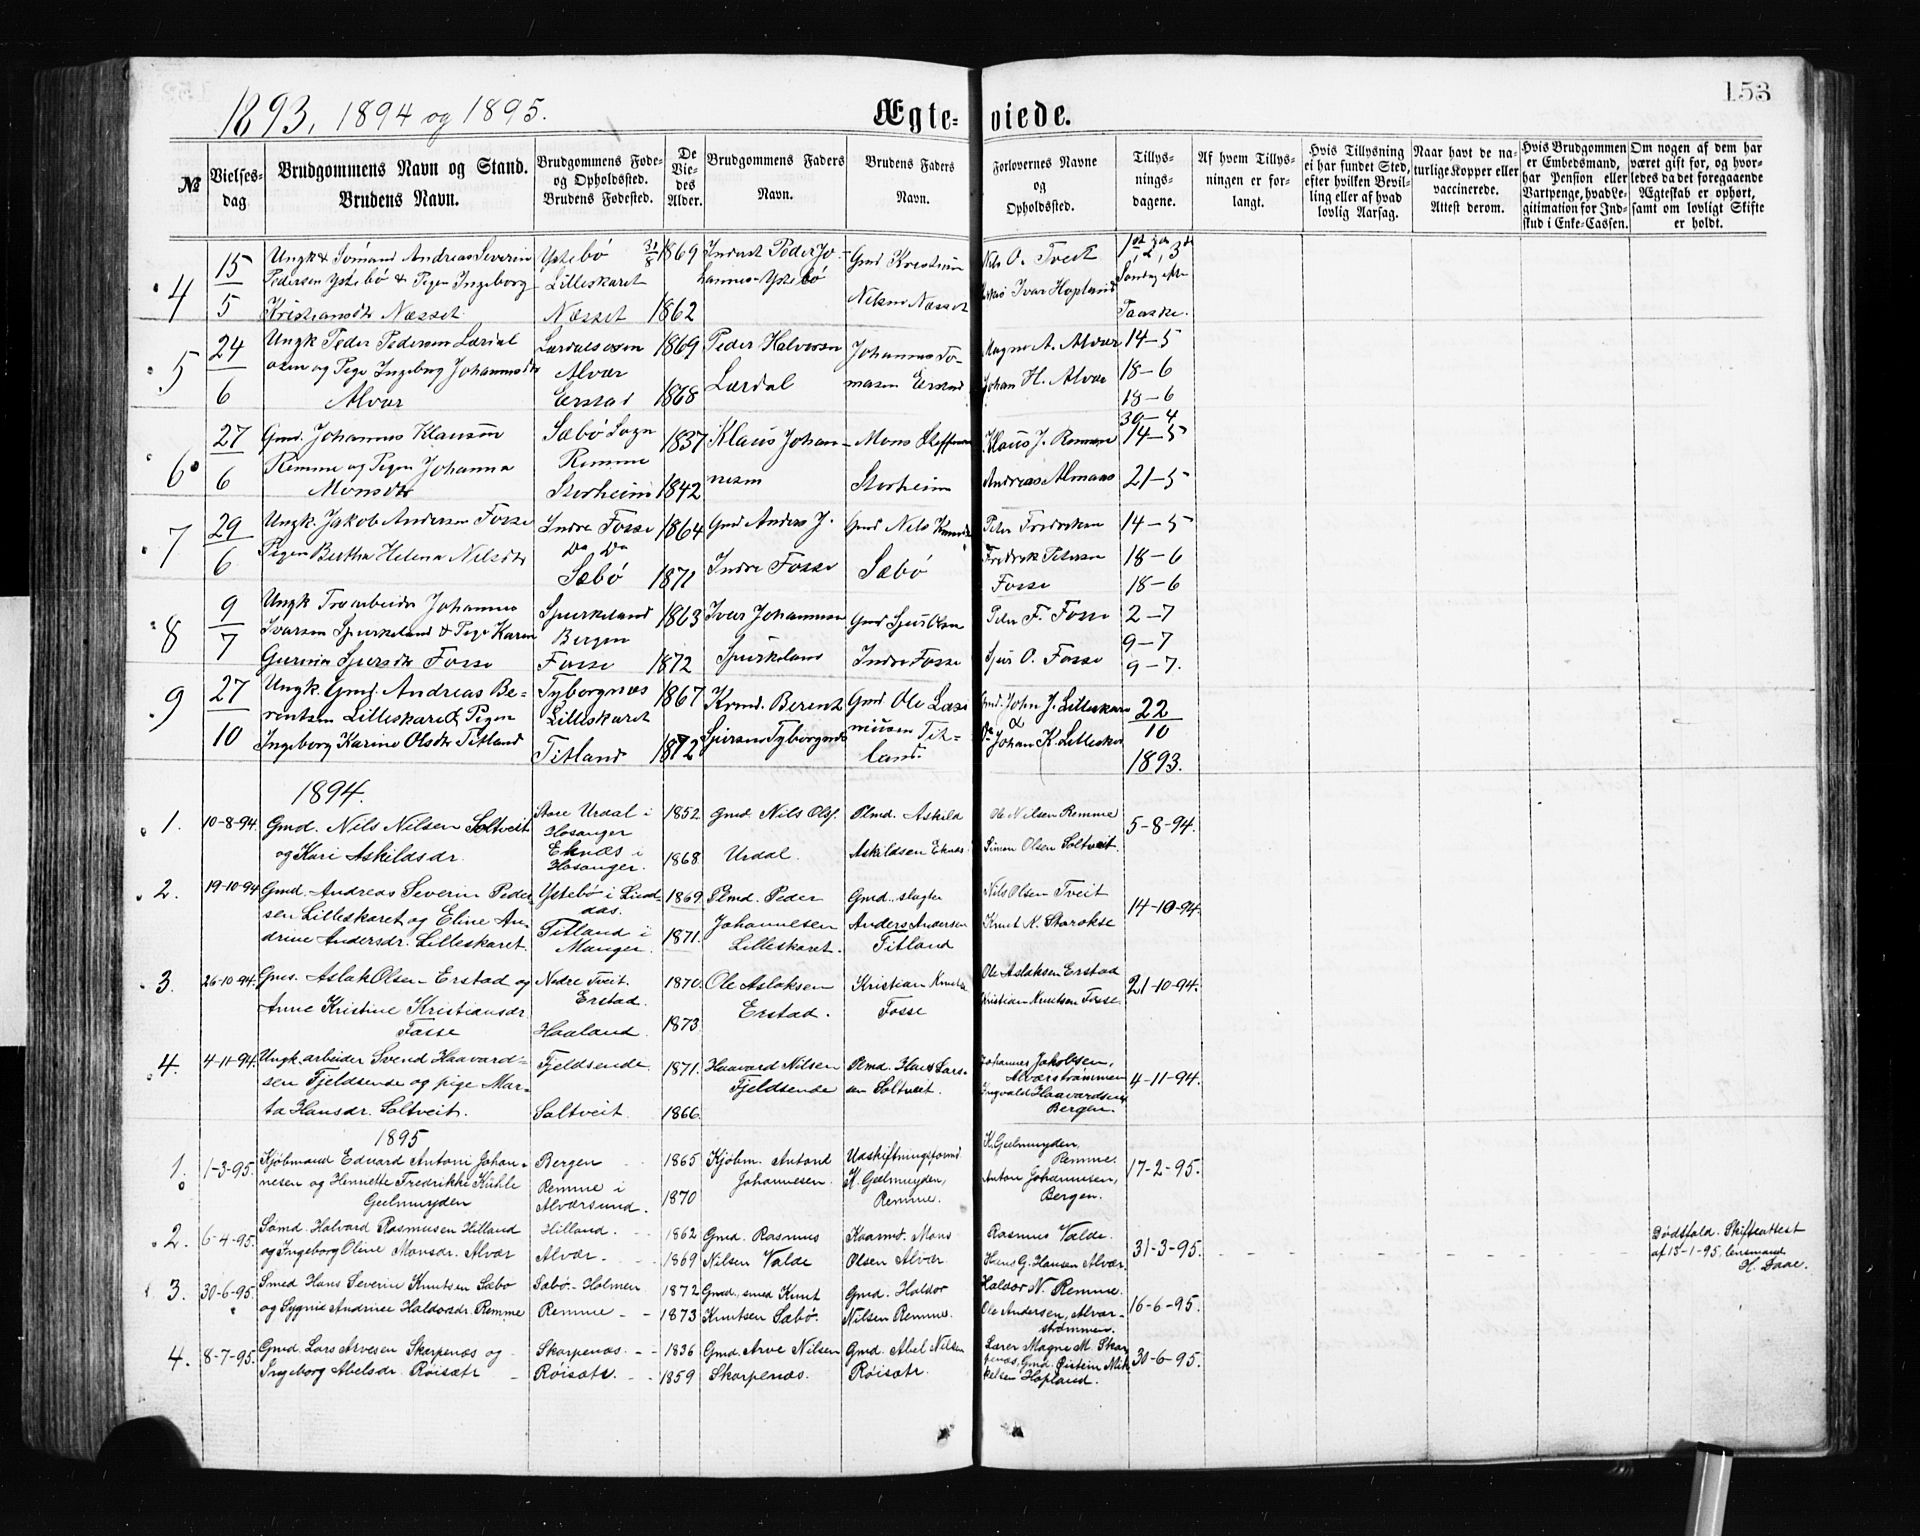 153
1893, 1894 og 1895.
Ægte-viede.
№
Vielses-dag
Brudgommens Navn og Stand. Brudens Navn.
Brudgommens Føde- og Opholdssted. Brudens Fødested.
De Vie-des Alder.
Brudgommens Faders Navn.
Brudens Faders Navn.
Forlovernes Navne og Opholdssted.
Tillys-nings-dagene.
Af hvem Tillys-ningen er for-langt.
Hvis Tillysning ei har fundet Sted, efter hvilken Bevil-ling eller af hvad lovlig Aarsag.
Naar havt de na-turlige Kopper eller vaccinerede. Attest derom.
Hvis Brudgommen er Embedsmand, har Pension eller Vartpenge, hvad Le-gitimation for Ind-skud i Enke-Cassen.
Om nogen af dem har været gift før, og hvor-ledes da det foregaaende Ægteskab er ophørt, samt om lovligt Skifte er holdt.
4
15/5
Ungk & Sømand Andreas Severin
Pedersen Ystebø & Pigen Ingeborg
Kristiansdtr Næsset
Ystebø
Lilleskaret
Næsset
31/8 1869
1862
Inderst Peder Jo-
hannes Ystebø
Gmd Kristian
Nilsen Næsset
Nils O. Tveit
Ivar Hopland
1st, 2den, 3de
Søndag efter
Paaske.
5
24/6
Ungk Peder Pedersen Lærdal
osen og Pige Ingeborg Johannesdtr
Alvær
Lærdalsosen
Alvær
Erstad
1869
1868
Peder Halvorsen
Lærdal
Johannes To-
masen Erstad
Magne A. Alvær
Johan H. Alvær
14-5
18-6
18-6
6
27/6
Gmd. Johannes Klausen
Remme og Pigen Johanna
Monsdtr
Sæbø Sogn
Remme
Storheim
1837
1842
Klaus Johan-
nesen
Mons Steffensen
Storheim
Klaus J. Remme
Andreas Almaas
30-4
14-5
21-5
7
29/6
Ungk. Jakob Andersen Fosse
Pigen Bertha Helena Nilsdtr
Indre Fosse
Do Do
Sæbø
1864
1871
Gmd Anders J.
Indre Fosse
Gmd Nils
Sæbø
Peter Fredriksen
Fredrik Petersen
Fosse
14-5
18-6
18-6
8
9/7
Ungk Johannes
Ivarsen Spurkeland & Pige Karen
Gurina Sjursdtr Fosse
Spurkeland
Bergen
Fosse
1863
1872
Iver Johannesen
Spurkeland
Gmd Sjur Olsen
Indre Fosse
Peter F. Fosse
Sjur O. Fosse
2-7
9-7
9-7.
9
27/10
Ungk. Gmd. Andreas Be-
rentsen Lilleskaret & Pigen
Ingeborg Karine Olsdtr Titland
Tyborgnæs
Lilleskaret
Titland
1867
1872
Berent
Sjursen Tyborgnæs
Gmd Ole Lasse
Tit-
land.
Gmd. John J. Lilleskare
&
Do Johan K. Lilleskar
22/10
1893.
1894.
1.
10-8-94.
Gmd. Nils Nilsen Soltveit
og Kari Askildsdr.
Store Urdal i
Hosanger
Eknæs i
Hosanger.
1852.
1868.
Gmd. Nils Ols.
Urdal.
Plmd. Askild
Askildsen Eknæs.
Ole Nilsen Remme
Simon Olsen Soltveit.
5-8-94.
2.
19-10-94
Gmd. Andreas Severin Peder-
sen Lilleskaret og Eline An-
drine Andersdr. Lilleskaret.
Ystebø i Lind-
aas.
Titland i
Manger.
1869.
1871.
Plmd. Peder
Johannesen
Lilleskaret.
Gmd. slagter
Anders Andersen
Titland
Nils Olsen Tveit
Knut K. Storokse
14-10-94.
3.
26-10-94.
Gms. Aslak Olsen Erstad og
Anne Kristine Kristiansdr
Fosse
Nedre Tveit.
Erstad.
Haaland.
1870.
1873.
Ole Aslaksen
Erstad.
Kristian Knutsen
Fosse
Ole Aslaksen Erstad
Kristian Knutsen Fosse.
21-10-94.
4.
4-11-94.
Ungk. arbeider Svend Haavard-
sen Fjeldsende og pige Mar-
ta Hansdr. Soltveit.
Fjeldsende.
Soltveit.
1871.
1866.
Haavard Nilsen
Fjeldsende
Plmd. Hans Lars-
en Soltveit.
Johannes Jakobsen,
Alværstrømmen
Ingvald Haavardsen,
Bergen.
4-11-94.
1895
1.
1-3-95.
Kjøbmand Edvard Antoni Johan-
nesen og Henriette Fredrikke Kühle
Geelmuyden
Bergen
Remme i
Alværsund.
1865
1870
Kjøbm. Antond
Johannesen.
Udskiftningsformd
K. Geelmuyden,
Remme.
K. Geelmuyden,
Remme.
Anton Johannesen,
Bergen.
17-2-95.
2.
6-4-95.
Sømd. Halvard Rasmusen Hilland
og Ingeborg Oline Monsdr. Alvær
Hilland.
Alvær
1862
1869
Gmd. Rasmus
Nilsen Valde
Kaarmd. Mons
Olsen Alvær
Rasmus Valde.
Hans G. Hansen Alvær.
31-3-95.
Dødsfald. Skifteattest
af 13-1-95, lensmand
H. Daae.
3.
30-6-95.
Smed Hans Severin Knutsen Sæbø
og Sygnie Andrine Haldorsdr. Remme
Sæbø-Holmen
Remme
1872
1873
Gmd., smed Knut
Knutsen Sæbø.
Gmd. Haldor
Nilsen Remme.
Haldor N. Remme.
Ole Andersen, Alvær-
strømmen.
16-6-95.
4.
8-7-95.
Gmd. Lars Arvesen Skarpenæs og
Ingeborg Abelsdr. Røisætr
Skarpenæs.
Røisætr.
1836
1859
Gmd. Arve Nilsen
Skarpenæs.
Gmd. Abel Nilsen
Røisætr.
Lærer Magne M. Skar-
penæs, Gmd. Øistein Mik-
kelsen Hopland.
30-6-95.